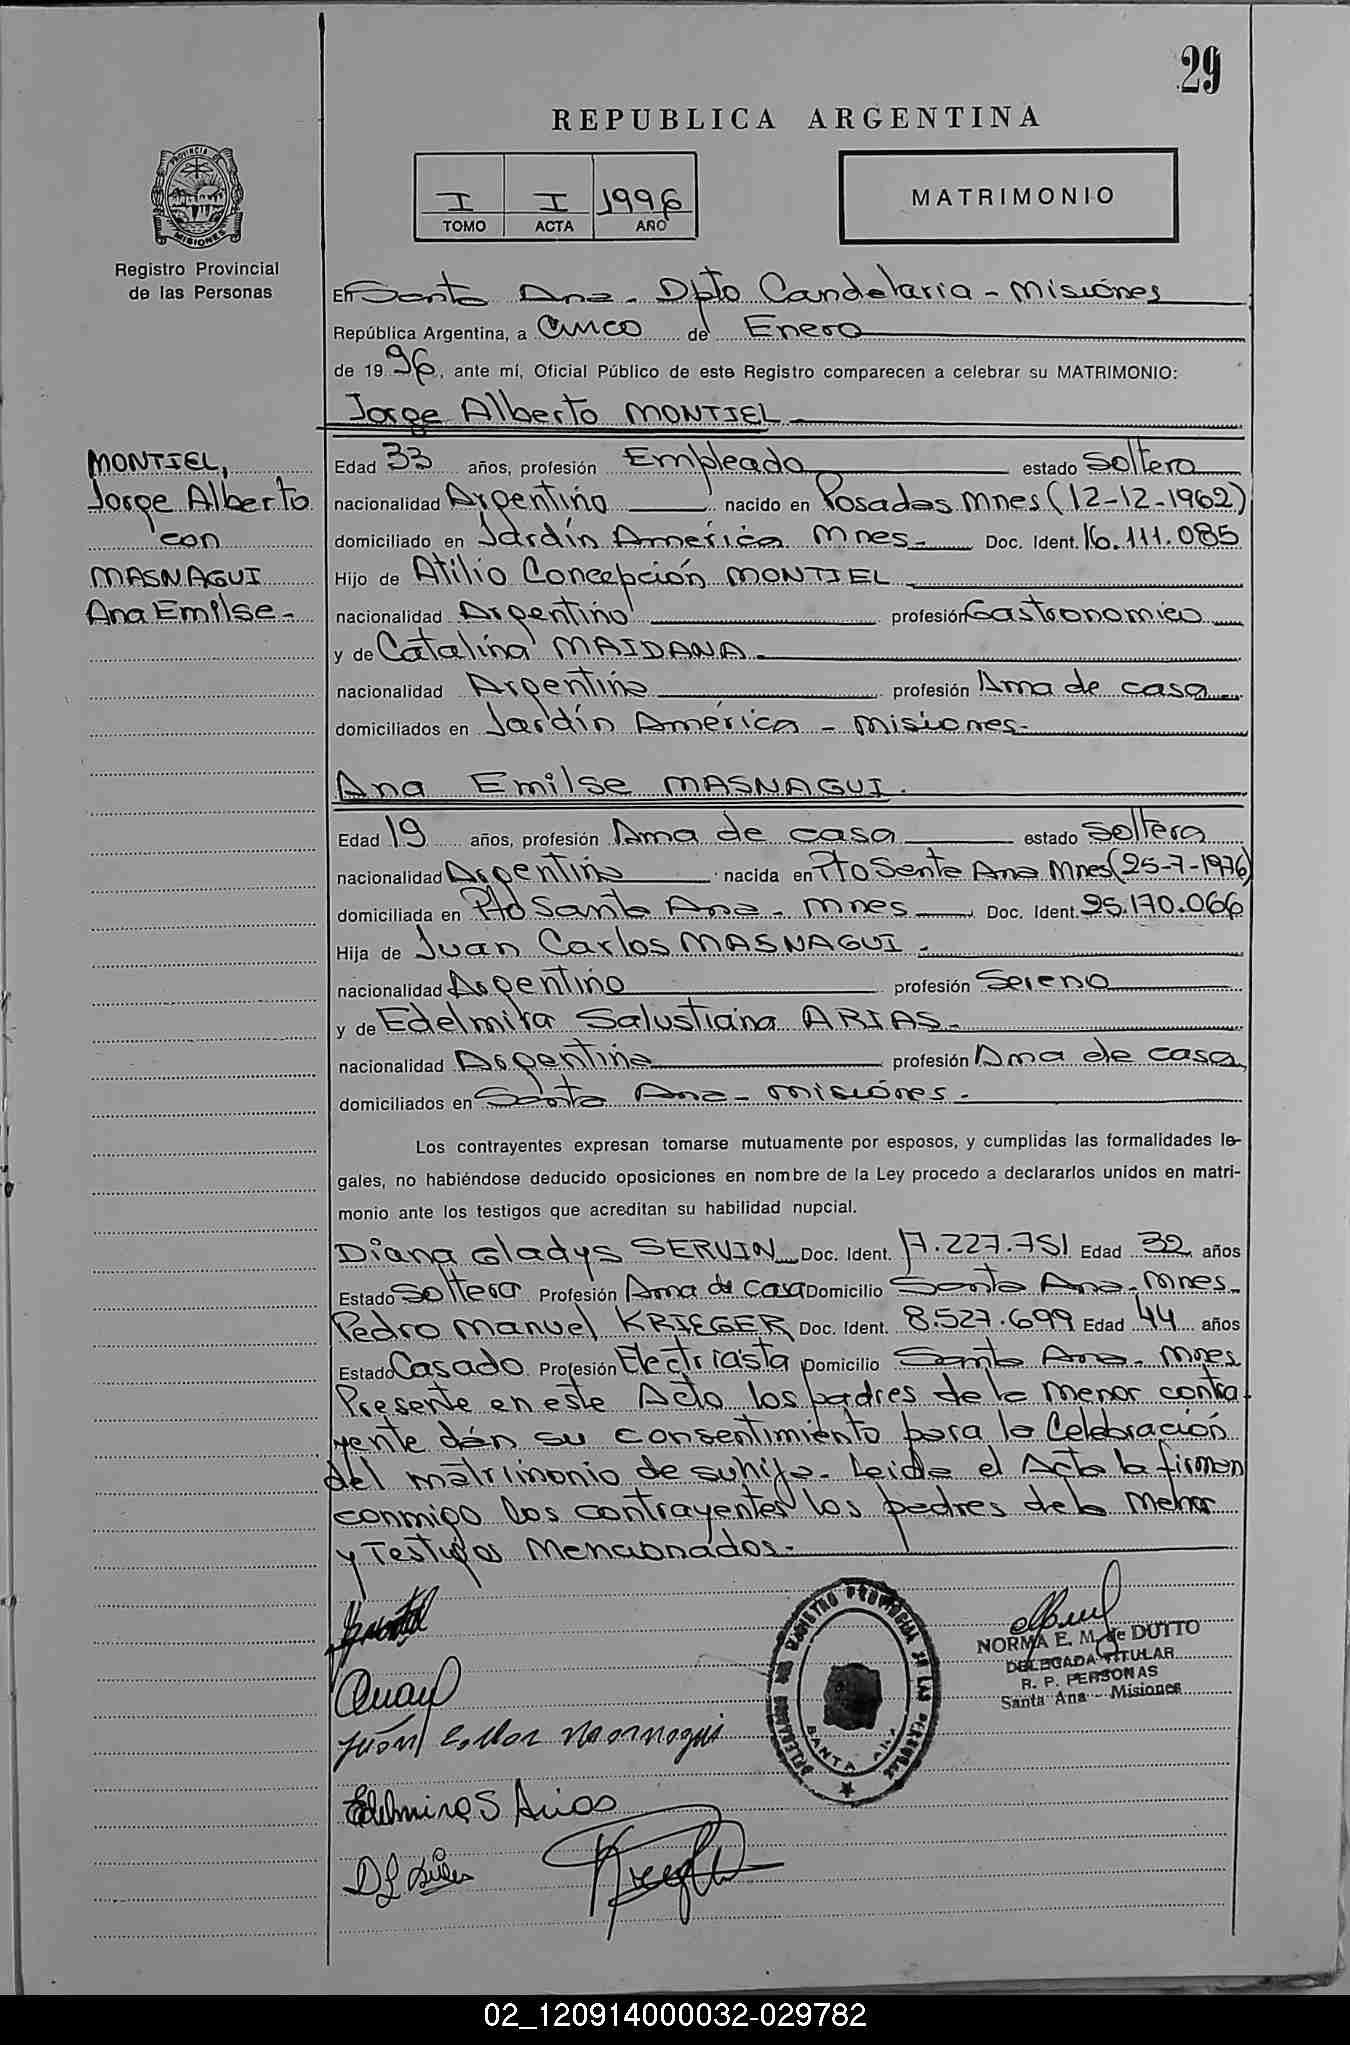 29
REPUBLICA ARGENTINA
I I 1996
TOMO ACTA AÑO
MATRIMONIO
PROVINCIA DE
MISIONES
Registro Provincial
de las Personas
En Santa Ana - Dpto Candelaria - Misiones
República Argentina, a Cinco de Enero
de 19 96, ante mí, Oficial Público de este Registro comparecen a celebrar su MATRIMONIO:
Jorge Alberto MONTIEL
MONTIEL,
Jorge Alberto
con
MASNAGUI
Ana Emilse-
Edad 33 años, profesión Empleado estado Soltero
nacionalidad Argentino nacido en Posadas Mnes (12-12-1962)
domiciliado en Jardín América Mnes- Doc. Ident. 16.111.085
Hijo de Atilio Concepción MONTIEL
nacionalidad Argentino profesión Gastronomico
y de Catalina MAIDANA
nacionalidad Argentina profesión Ama de casa
domiciliados en Jardín América - Misiones-
Ana Emilse MASNAGUI.
Edad 19 años, profesión Ama de casa estado Soltera
nacionalidad Argentina nacida en Pto Santa Ana Mnes (25-7-1976)
domiciliada en Pto Santa Ana - Mnes Doc. Ident. 25.170.066
Hija de Juan Carlos MASNAGUI -
nacionalidad Argentino profesión Sereno
y de Edelmira Salustiana ARIAS-
nacionalidad Argentina profesión Ama de casa
domiciliados en Santa Ana - Misiones -
Los contrayentes expresan tomarse mutuamente por esposos, y cumplidas las formalidades le-
gales, no habiéndose deducido oposiciones en nombre de la Ley procedo a declararlos unidos en matri-
monio ante los testigos que acreditan su habilidad nupcial.
Diana Gladys SERVIN Doc. Ident. 17.227.751 Edad 32 años
Estado Soltera Profesión Ama de Casa Domicilio Santa Ana - Mnes-
Pedro Manuel KRIEGER Doc. Ident. 8.527.699 Edad 44 años
Estado Casado Profesión Electricista Domicilio Santa Ana - Mnes
Presente en este Acto los padres de la menor contra
yente dán su consentimiento para la Celebración
del matrimonio de su hija- Leida el Acta la firman
conmigo los contrayentes los padres de la Menor
y Testigos Mencionados-
NORMA E. M. de DUTTO
DELEGADA TITULAR
R. P. PERSONAS
Santa Ana - Misiones
REGISTRO PROVINCIAL DE LAS PERSONAS
SANTA ANA
Juan Carlos Masnagui
Edelmira S Arias
02_120914000032-029782